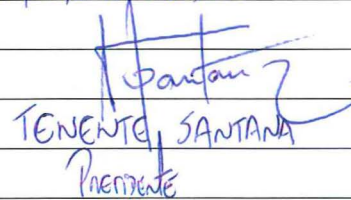 Santana
TENENTE SANTANA
PRESIDENTE